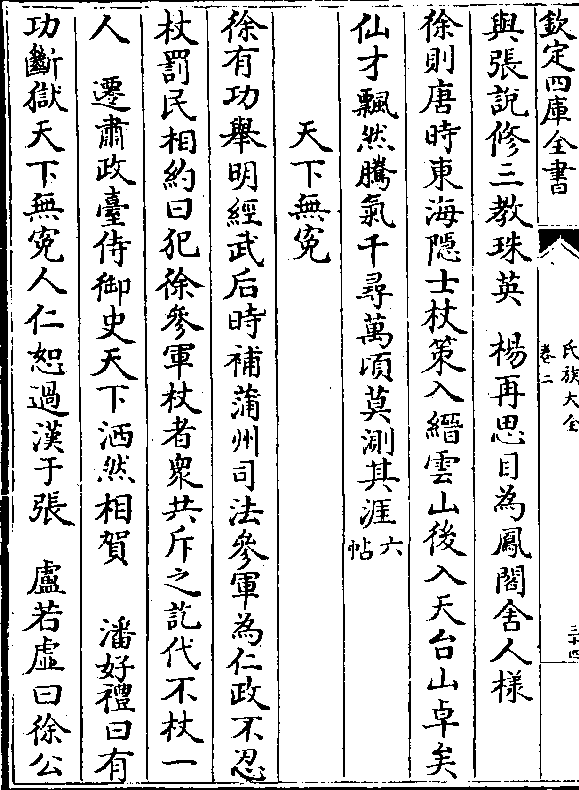 欽定四庫全書
氏族大全
卷二
三十四
與張說修三教珠英　楊再思目為鳳閣舍人樣
徐則唐時東海隱士杖策入縉雲山後入天台山卓矣
仙才飄然騰氣千尋萬頃莫測其涯六帖
天下無寃
徐有功舉明經武后時補蒲州司法參軍為仁政不忍
杖罰民相約曰犯徐參軍杖者衆共斥之訖代不杖一
人　遷肅政臺侍御史天下洒然相賀　潘好禮曰有
功斷獄天下無寃人仁恕過漢于張　盧若虛曰徐公